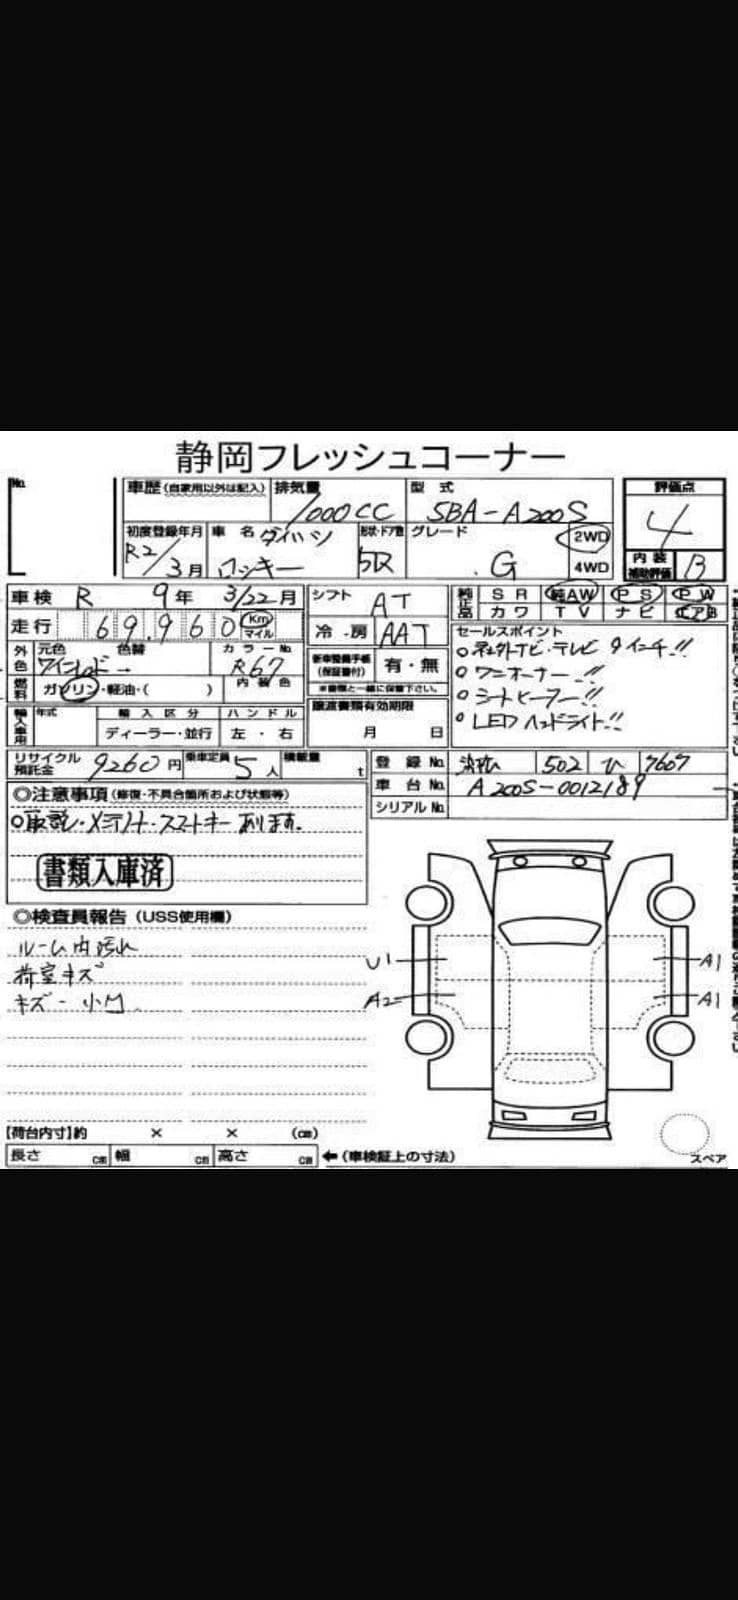 静岡フレッシュコーナー
No.
車歴(自家用以外は記入) 排気量 1000CC 型式 5BA-A200S 評価点 4
初度登録年月 R2/3月 車名 ダイハツ ロッキー 形状・ドア数 5D グレード G 2WD 4WD 内装補助評価 B
車検 R 9年 3/22月 シフト AT 純正品 SR 純AW PS PW
走行 69,960 Km マイル 冷房 AAT カワ TV ナビ エアB
外色 元色 ワインレッド 色替 カラーNo. R67 新車整備手帳(保証書付) 有・無
※書類と一緒に保管下さい。
燃料 ガソリン・軽油・( ) 内装色
セールスポイント
○社外ナビ・テレビ 9インチ!!
○ワンオーナー!!
○シートヒーター!!
○LEDヘッドライト!!
輸入車用 年式 輸入区分 ディーラー・並行 ハンドル 左・右 譲渡書類有効期限 月 日
リサイクル預託金 9260円 乗車定員 5人 積載量 t 登録No. 浜松 502 ひ 7607
車台No. A200S-0012189
シリアルNo.
◎注意事項(修復・不具合箇所および状態等)
○取説・メンテノート・スマートキーあります。
書類入庫済
◎検査員報告(USS使用欄)
ルーム内汚れ
荷室キズ
キズ・小凹
U1 A1
A2 A1
【荷台内寸】約 × × (cm)
長さ cm 幅 cm 高さ cm ←(車検証上の寸法)
スペア